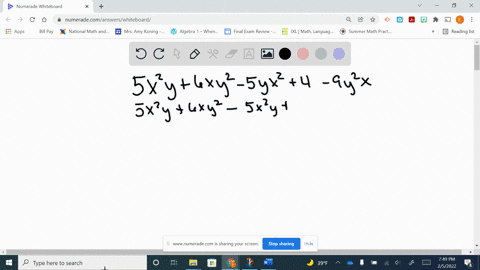 Numerade Whiteboard
numerade.com/answers/whiteboard/
Apps
Bill Pay
National Math and...
Mrs. Amy Koning -...
Algebra 1 – When...
Final Exam Review -...
IXL | Math, Languag...
Summer Math Pract...
Reading list
5x²y + 6xy² - 5yx² + 4 - 9y²x
5x²y + 6xy² - 5x²y +
www.numerade.com is sharing your screen.
Stop sharing
Hide
Type here to search
25°F
7:49 PM
2/5/2022